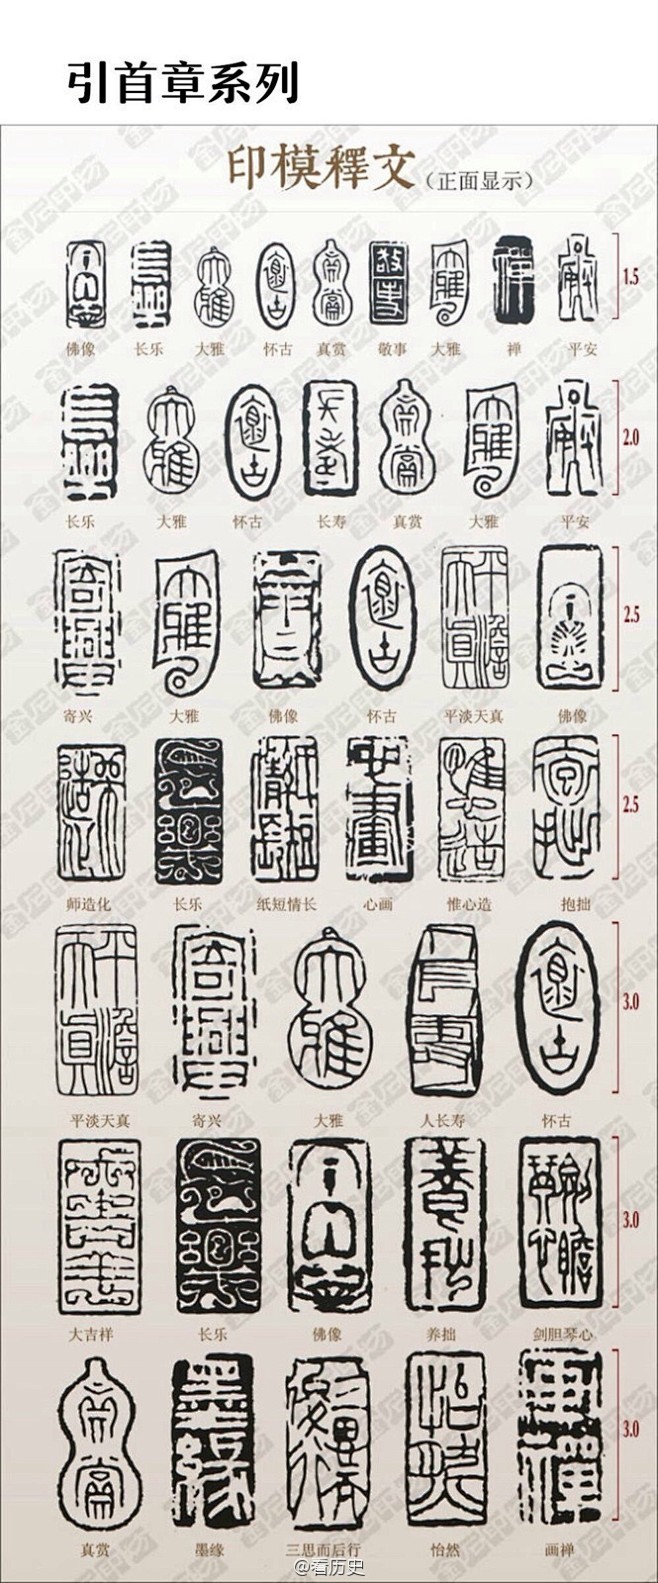 引首章系列
印模釋文（正面显示）
佛像 长乐 大雅 怀古 真赏 敬事 大雅 禅 平安
1.5
长乐 大雅 怀古 长寿 真赏 大雅 平安
2.0
寄兴 大雅 佛像 怀古 平淡天真 佛像
2.5
师造化 长乐 纸短情长 心画 惟心造 抱拙
2.5
平淡天真 寄兴 大雅 人长寿 怀古
3.0
大吉祥 长乐 佛像 养拙 剑胆琴心
3.0
真赏 墨缘 三思而后行 怡然 画禅
3.0
@看历史